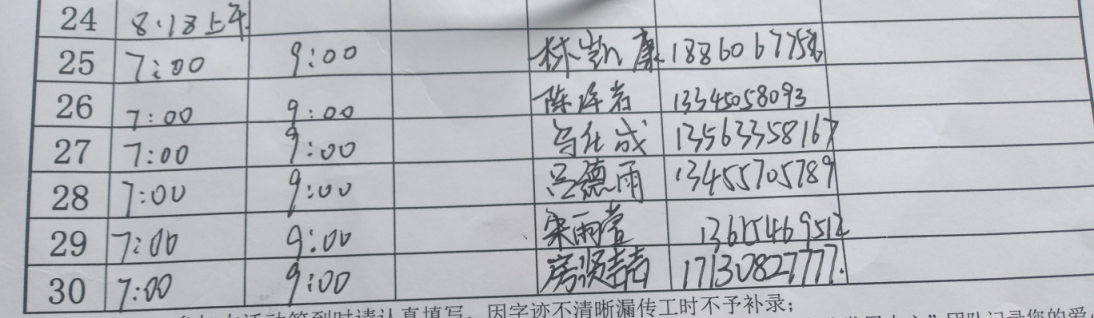 24 8.18上午
25 7:00 9:00 林凯康
26 7:00 9:00 13345058093
27 7:00 9:00 13563358167
28 7:00 9:00 吕德雨 13455705789
29 7:00 9:00 宋雨莹
30 7:00 9:00 17130827777.
活动签到时请认真填写，因字迹不清晰漏传工时不予补录；
团队记录您的爱